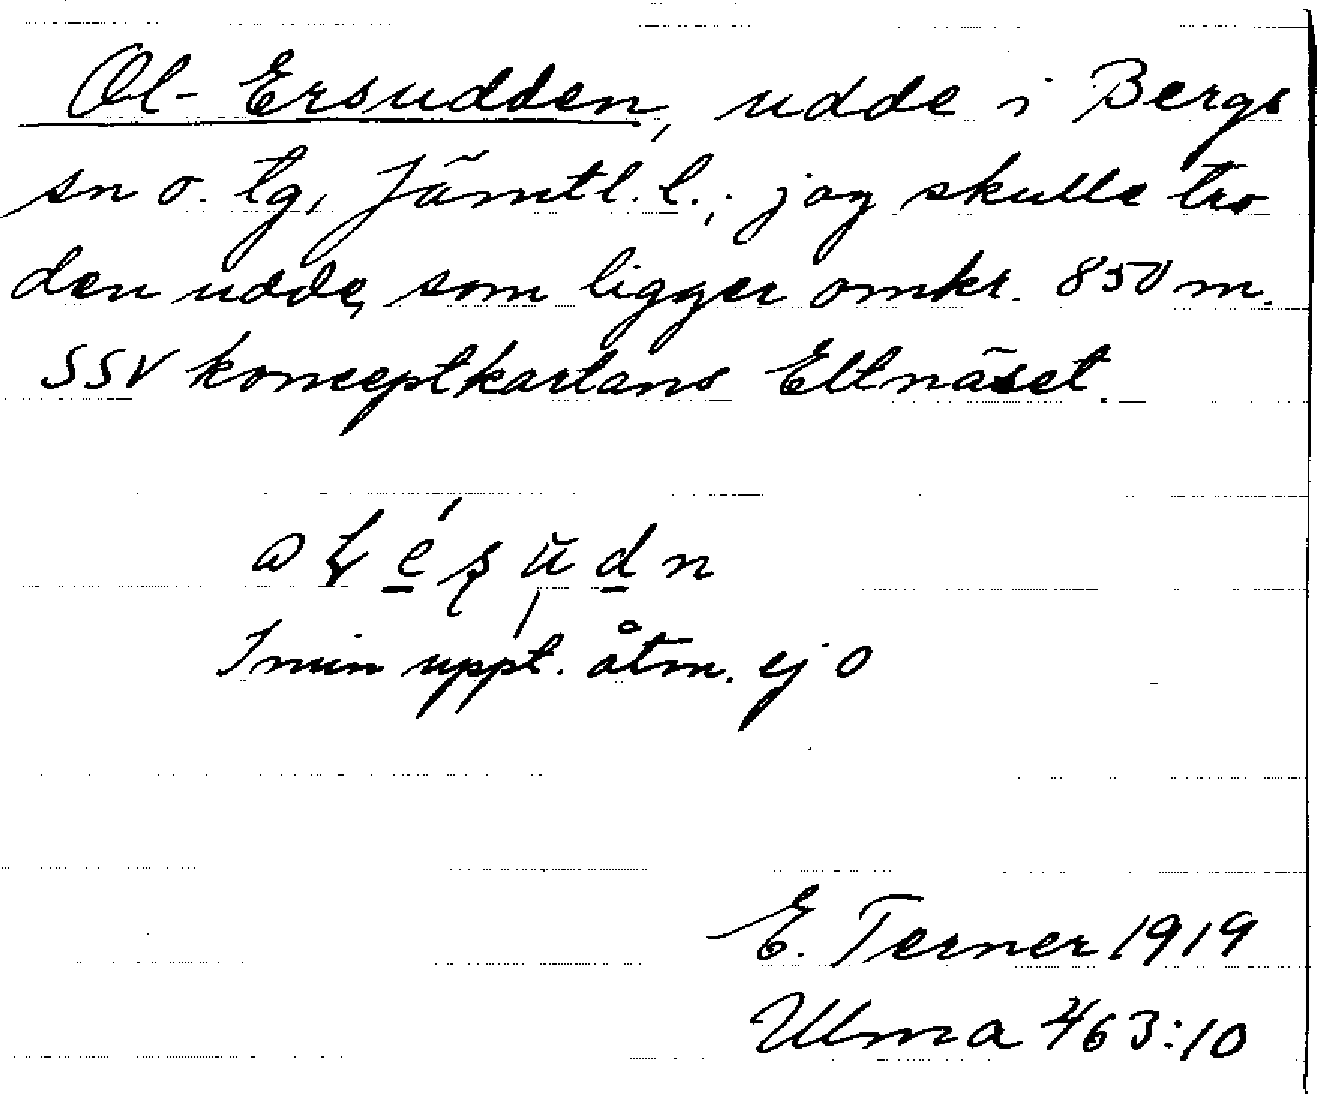 Ol-Ersudden, udde i Bergs
sn o. tg, Jämtl. l.; jag skulle tro
den udde, som ligger omkr. 850 m.
SSV konceptkartans Eltnäset.
I min uppt. åtm. ej o
E. Terner 1919
Ulma 463:10